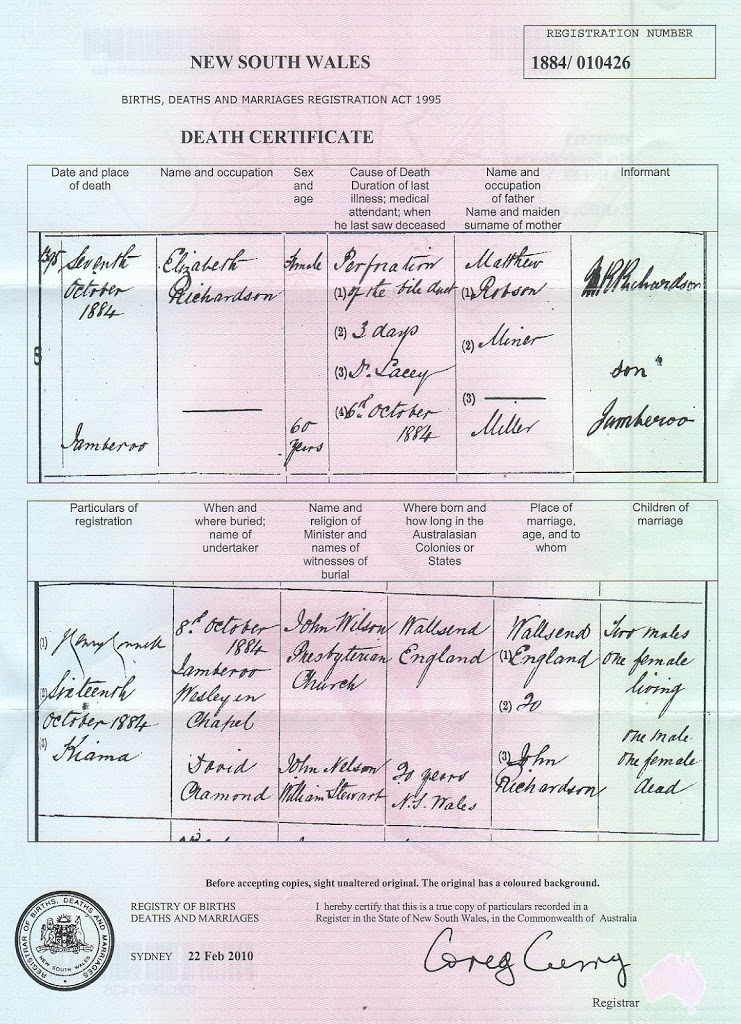 REGISTRATION NUMBER
1884/ 010426
NEW SOUTH WALES
BIRTHS, DEATHS AND MARRIAGES REGISTRATION ACT 1995
DEATH CERTIFICATE
Date and place
of death
Name and occupation
Sex
and
age
Cause of Death
Duration of last
illness; medical
attendant; when
he last saw deceased
Name and
occupation
of father
Name and maiden
surname of mother
Informant
Seventh
October
1884
Jamberoo
Elizabeth
Richardson
Female
60
years
Perforation
(1) of the bile duct
(2) 3 days
(3) Dr. Lacey
(4) 6th October
1884
Matthew
(1) Robson
(2) Miner
(3)
Miller
Richardson
son
Jamberoo
Particulars of
registration
When and
where buried;
name of
undertaker
Name and
religion of
Minister and
names of
witnesses of
burial
Where born and
how long in the
Australasian
Colonies or
States
Place of
marriage,
age, and to
whom
Children of
marriage
(1) Henry
(2) Sixteenth
October 1884
(3) Kiama
8th October
1884
Jamberoo
Wesleyen
Chapel
David
Chamond
John Wilson
Presbyterian
Church
John Nelson
William Stewart
Wallsend
England
30 years
N.S. Wales
Wallsend
(1) England
(2) 20
(3) John
Richardson
Two males
one female
living
one male
one female
dead
Before accepting copies, sight unaltered original. The original has a coloured background.
REGISTRAR OF BIRTHS, DEATHS AND MARRIAGES
NEW SOUTH WALES
REGISTRY OF BIRTHS
DEATHS AND MARRIAGES
SYDNEY 22 Feb 2010
I hereby certify that this is a true copy of particulars recorded in a
Register in the State of New South Wales, in the Commonwealth of Australia
Greg Curry
Registrar